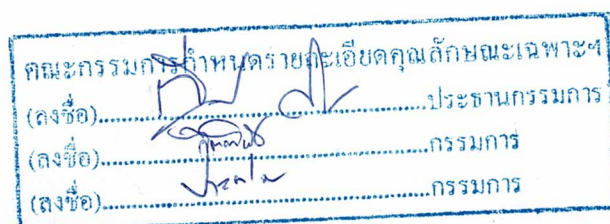 คณะกรรมการกำหนดรายละเอียดคุณลักษณะเฉพาะฯ
(ลงชื่อ)..........ประธานกรรมการ
(ลงชื่อ)..........กรรมการ
(ลงชื่อ)..........กรรมการ